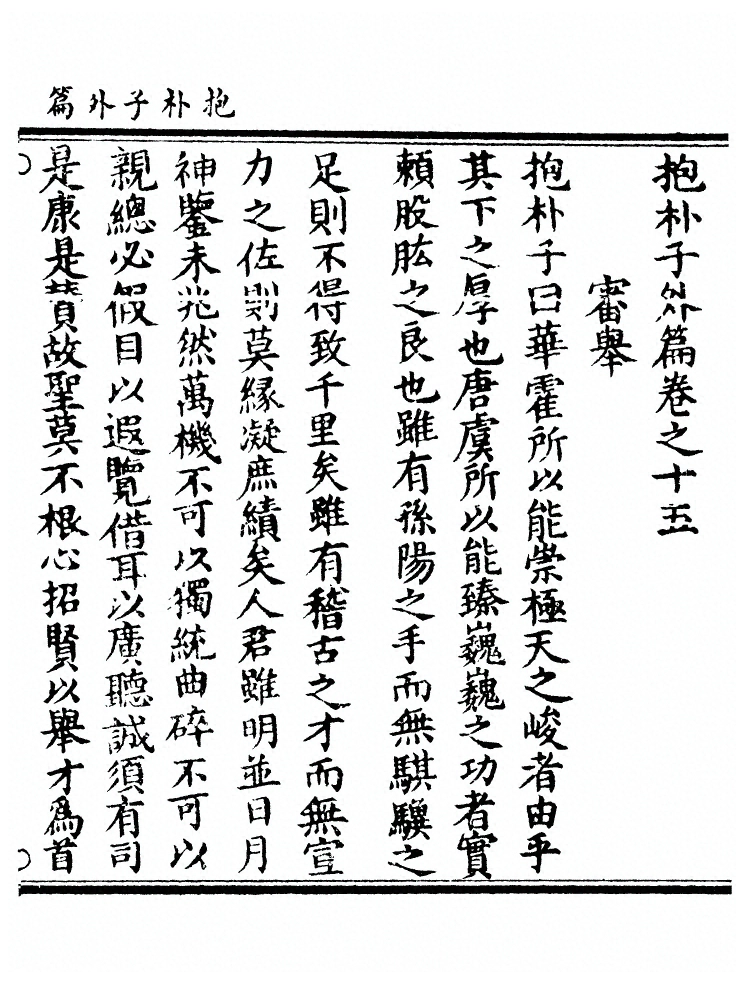 抱朴子外篇
抱朴子外篇卷之十五
審舉
抱朴子曰華霍所以能崇極天之峻者由乎
其下之厚也唐虞所以能臻巍巍之功者實
賴股肱之良也雖有孫陽之手而無騏驥之
足則不得致千里矣雖有稽古之才而無宣
力之佐則莫緣凝庶績矣人君雖明並日月
神鑒未兆然萬機不可以獨統曲碎不可以
親總必假目以遐覽借耳以廣聽誠須有司
是康是贊故聖莫不根心招賢以舉才爲首